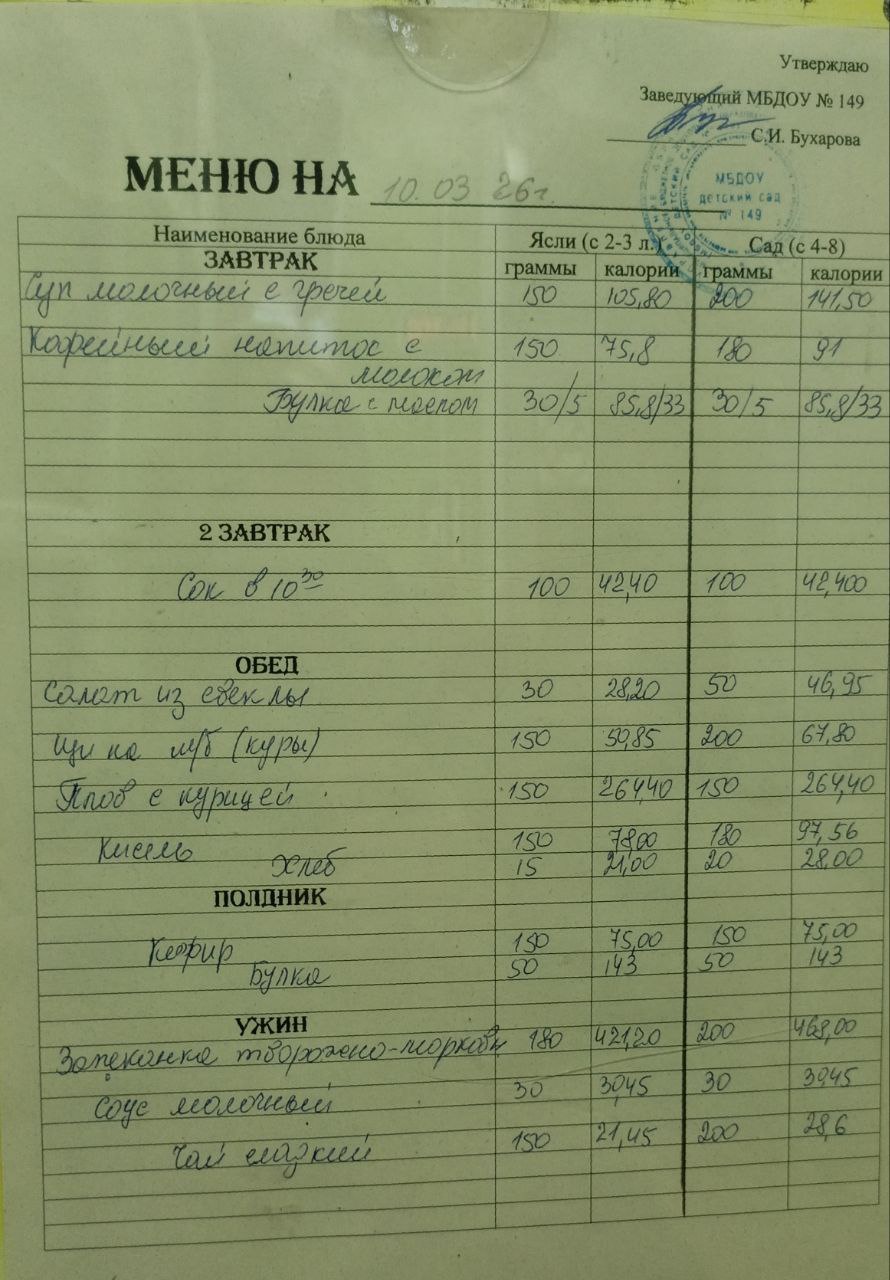 Утверждаю
Заведующий МБДОУ № 149
С.И. Бухарова
МБДОУ
детский сад
№ 149
МЕНЮ НА 10.03 26г.
Наименование блюда Ясли (с 2-3 л.) Сад (с 4-8)
ЗАВТРАК граммы калории граммы калории
Суп молочный с гречей 150 105,80 200 141,50
Кофейный напиток с 150 75,8 180 91
молоком
Булка с маслом 30/5 85,8/33 30/5 85,8/33
2 ЗАВТРАК
Сок в 10 30 100 42,40 100 42,400
ОБЕД
Салат из свеклы 30 28,20 50 46,95
Щи на м/б (куры) 150 50,85 200 67,80
Плов с курицей 150 264,40 150 264,40
Кисель 150 78,00 180 97,56
Хлеб 15 21,00 20 28,00
ПОЛДНИК
Кефир 150 75,00 150 75,00
Булка 50 143 50 143
УЖИН
Запеканка творожено-морковн 180 421,20 200 468,00
Соус молочный 30 39,45 30 39,45
Чай сладкий 150 21,45 200 28,6